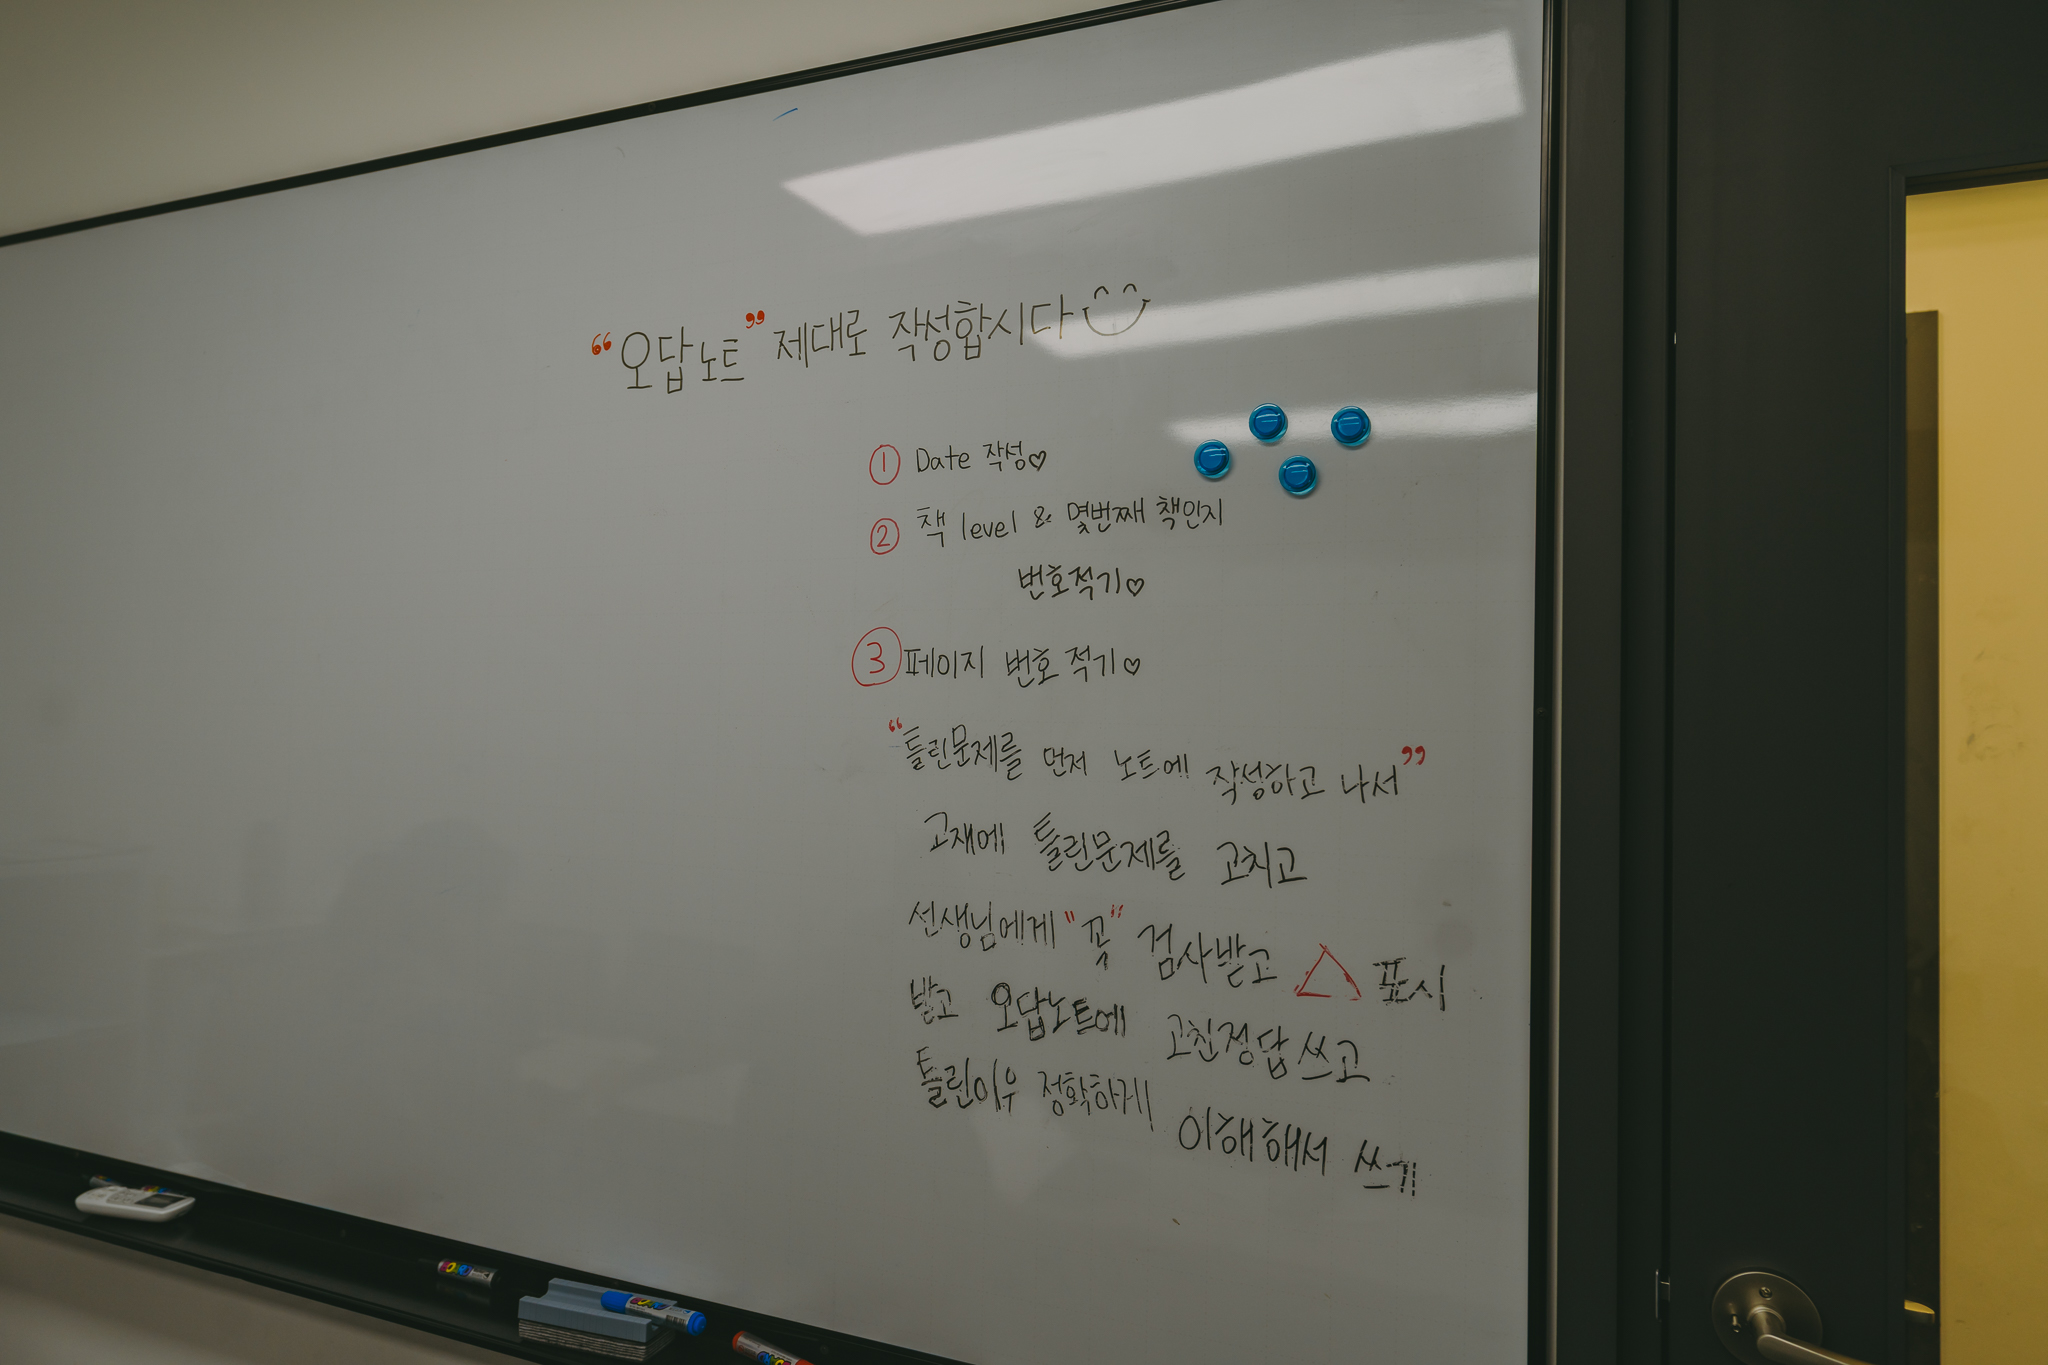 “오답노트” 제대로 작성합시다
① Date 작성♡
② 책 level & 몇번째 책인지
번호적기♡
③ 페이지 번호 적기♡
“틀린문제를 먼저 노트에 작성하고 나서”
교재에 틀린문제를 고치고
선생님에게 "꼭" 검사받고 △ 표시
받고 오답노트에 고친정답 쓰고
틀린이유 정확하게 이해해서 쓰기